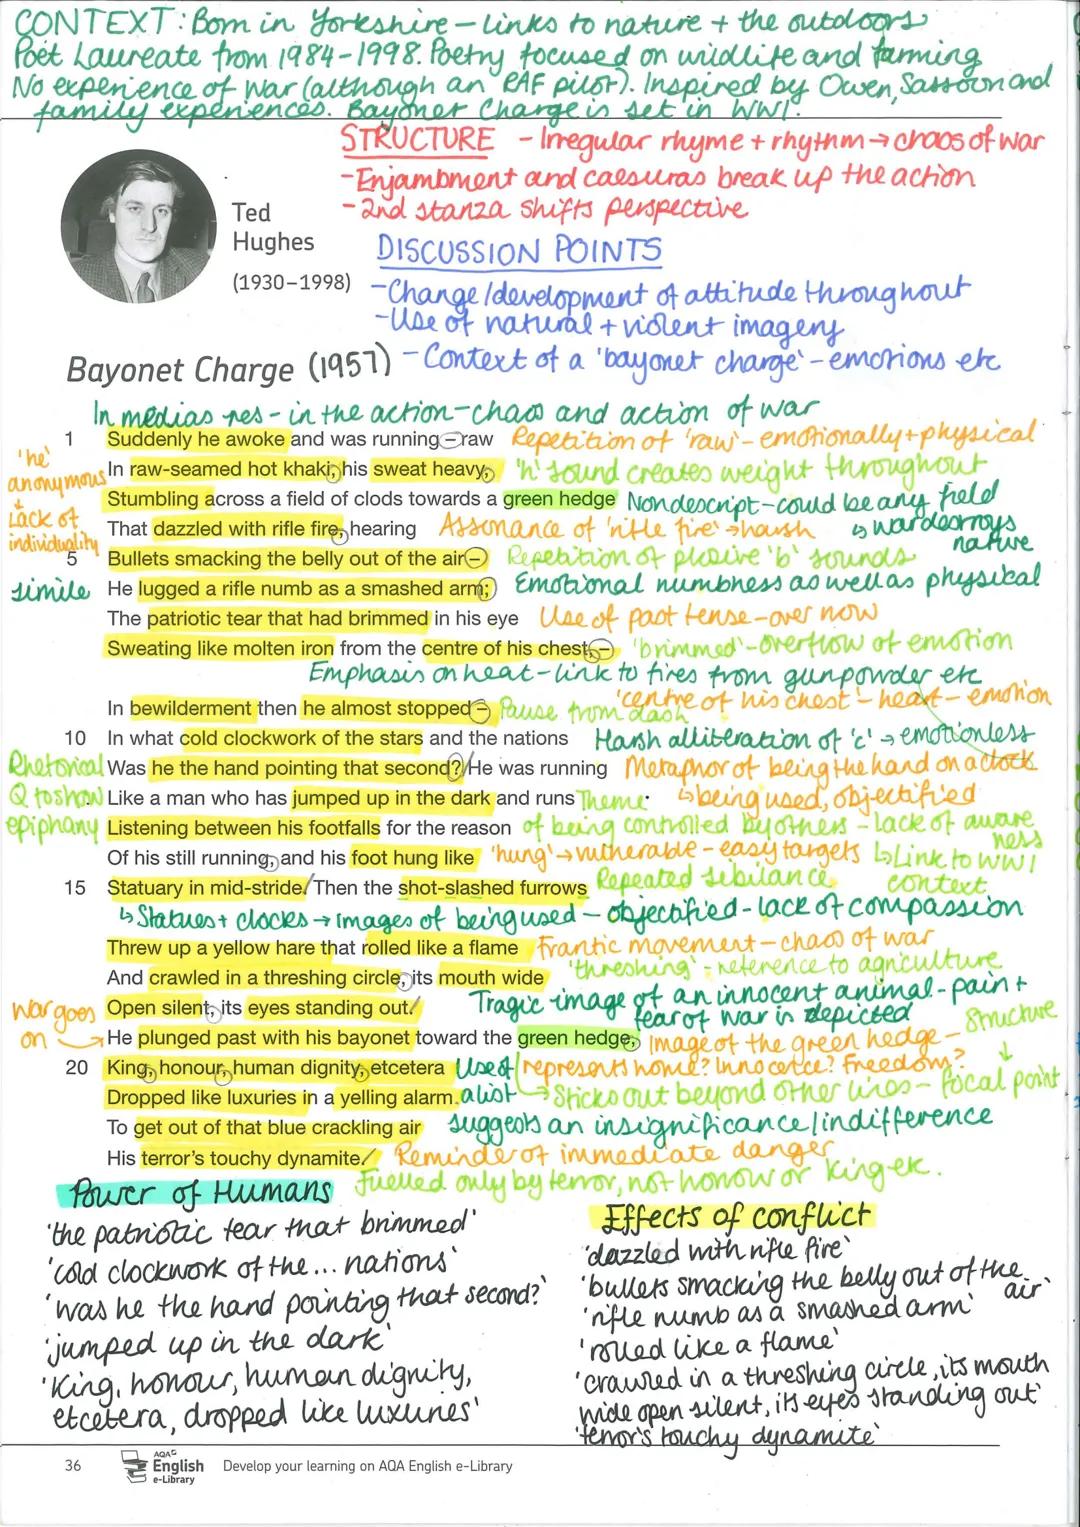 CONTEXT: Born in Yorkshire – links to nature + the outdoors
Poet Laureate from 1984-1998. Poetry focused on wildlife and farming
No experience of war (although an RAF pilot). Inspired by Owen, Sassoon and
family experiences. Bayonet Charge is set in WW1.
STRUCTURE - Irregular rhyme + rhythm → chaos of war
- Enjambment and caesuras break up the action
- 2nd stanza shifts perspective
Ted
Hughes
(1930–1998)
DISCUSSION POINTS
- Change/development of attitude throughout
- Use of natural + violent imagery
- Context of a 'bayonet charge' - emotions etc
Bayonet Charge (1957)
In medias res - in the action - chaos and action of war
1 Suddenly he awoke and was running – raw Repetition of 'raw' - emotionally + physical
'he' anonymous + Lack of individuality
In raw-seamed hot khaki, his sweat heavy, 'h' sound creates weight throughout
Stumbling across a field of clods towards a green hedge Nondescript - could be any field
↳ war destroys nature
That dazzled with rifle fire, hearing Assonance of 'rifle fire' → harsh
5 Bullets smacking the belly out of the air – Repetition of plosive 'b' sounds
simile He lugged a rifle numb as a smashed arm; Emotional numbness as well as physical
The patriotic tear that had brimmed in his eye Use of past tense - over now
Sweating like molten iron from the centre of his chest, – 'brimmed' - overflow of emotion
Emphasis on heat - link to fires from gunpowder etc
'centre of his chest' - heart - emotion
In bewilderment then he almost stopped – Pause from dash
10 In what cold clockwork of the stars and the nations Harsh alliteration of 'c' → emotionless
Rhetorical Q to show epiphany
Was he the hand pointing that second? He was running Metaphor of being the hand on a clock
↳ being used, objectified
Like a man who has jumped up in the dark and runs Theme
Listening between his footfalls for the reason of being controlled by others - lack of awareness
↳ Link to WW1 context
Of his still running, and his foot hung like 'hung' → vulnerable - easy targets
15 Statuary in mid-stride. Then the shot-slashed furrows Repeated sibilance
↳ Statues + clocks → images of being used - objectified - lack of compassion
Threw up a yellow hare that rolled like a flame Frantic movement - chaos of war
And crawled in a threshing circle, its mouth wide 'threshing' - reference to agriculture
Open silent, its eyes standing out. Tragic image of an innocent animal - pain + fear of war is depicted
war goes on → He plunged past with his bayonet toward the green hedge, Image of the green hedge -
represents home? Innocence? Freedom?
Structure
↓
→ Sticks out beyond other lines - focal point
20 King, honour, human dignity, etcetera Use of
Dropped like luxuries in a yelling alarm a list
To get out of that blue crackling air suggests an insignificance/indifference
His terror's touchy dynamite. Reminder of immediate danger
Fuelled only by terror, not honour or King etc.
Power of Humans
'the patriotic tear that brimmed'
'cold clockwork of the... nations'
'was he the hand pointing that second?'
'jumped up in the dark'
'King, honour, human dignity,
etcetera, dropped like luxuries'
Effects of conflict
'dazzled with rifle fire'
'bullets smacking the belly out of the air'
'rifle numb as a smashed arm'
'rolled like a flame'
'crawled in a threshing circle, its mouth
wide open silent, its eyes standing out'
'terror's touchy dynamite'
36
AQA
English
e-Library
Develop your learning on AQA English e-Library